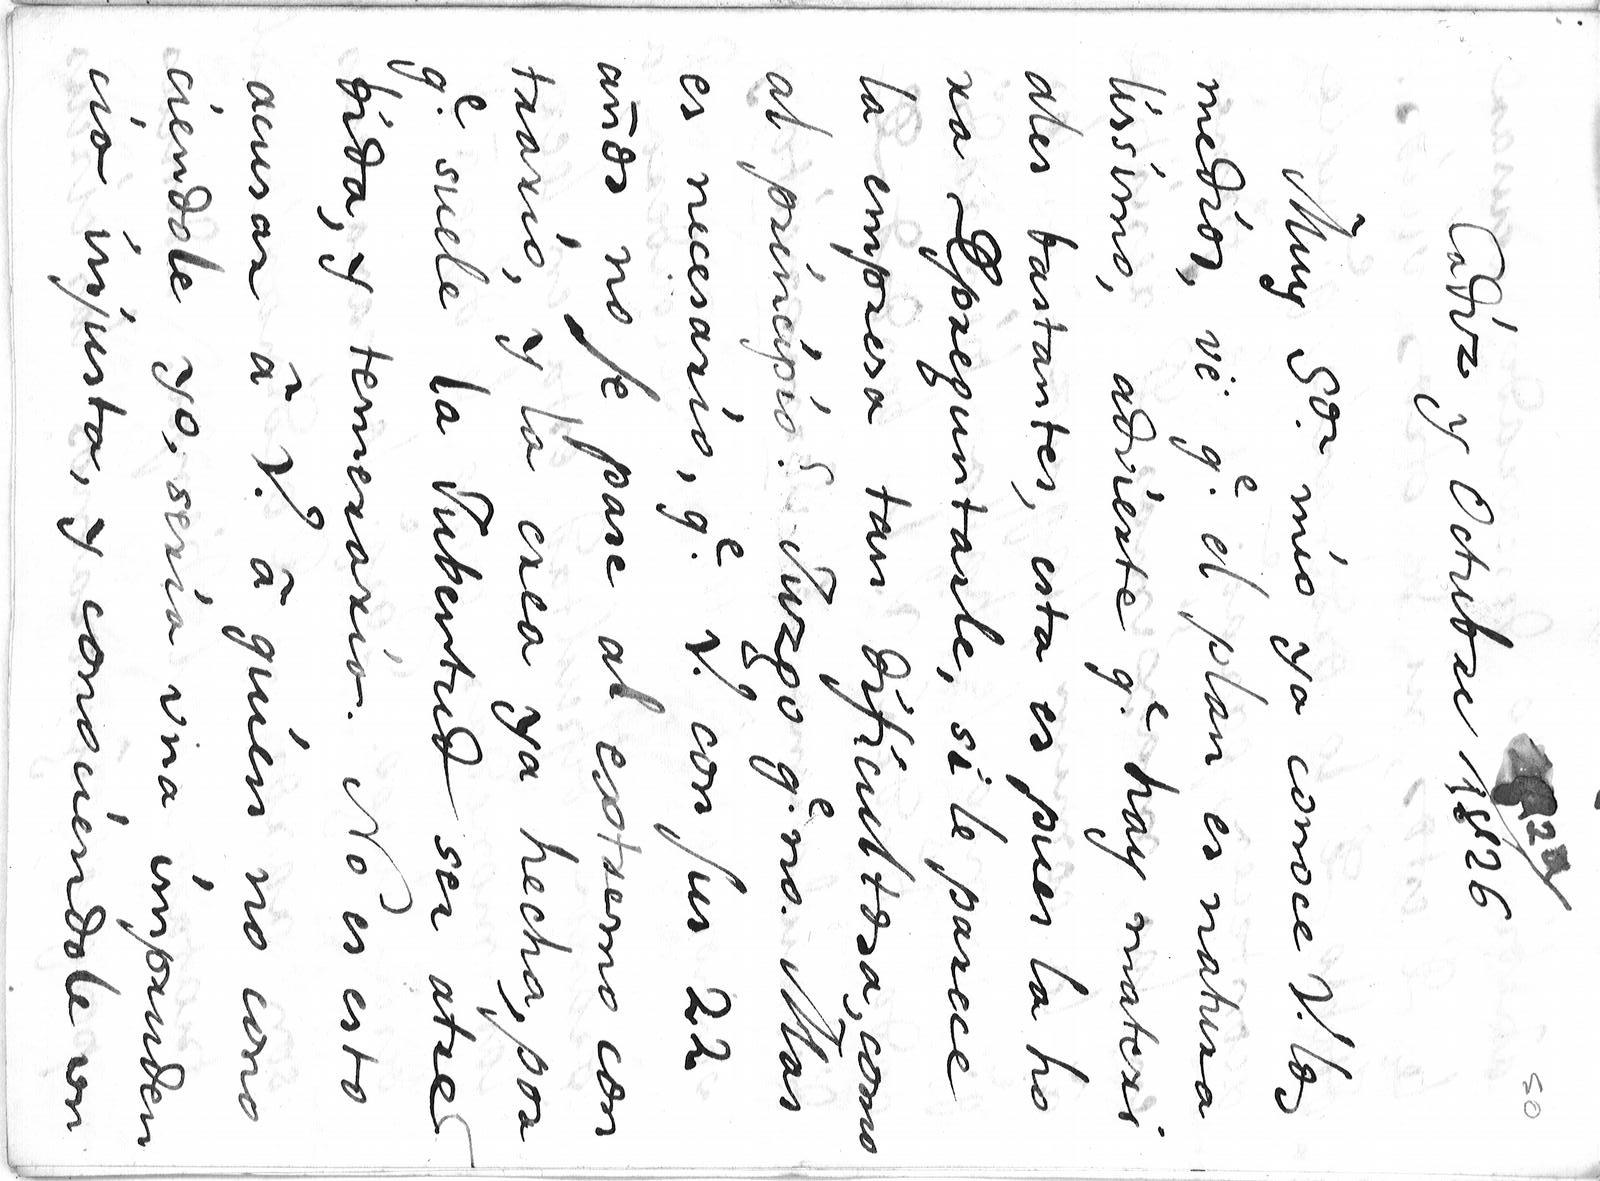 50
Cadiz y Octubre 22 1826
Muy Sor mio ya conoce V. los
medios, vé qe. el plan es natura
lissimo, advierte qe. hay materi
ales bastantes, esta es pues la ho
ra preguntarle, si le parece
la empresa tan dificultosa, como
al principio? Juzgo qe. no. Mas
es necesario, qe. V. con sus 22
años no se pase al extremo con
trario, y la crea ya hecha, por
qe. suele la Jubentud ser atre
bida, y temeraria. No es esto
acusar â V. â quien no cono
ciendole yo, seria una impruden
cia injusta, y conociendole un